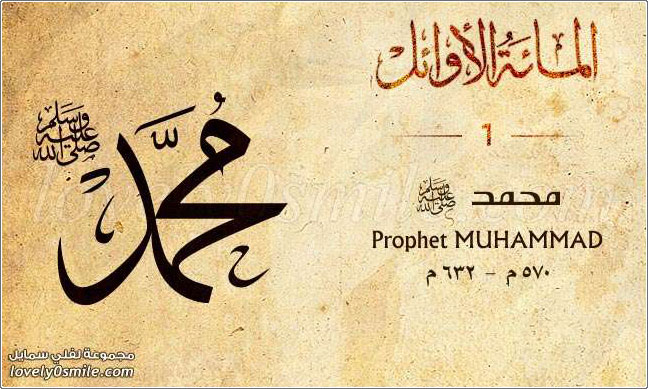 المائة الأوائل
1
محمد ﷺ
Prophet MUHAMMAD
٥٧٠ م - ٦٣٢ م
مُحَمَّد
صلى الله عليه وسلم
lovely0smile.com
مجموعة لفلي سمايل
lovely0smile.com